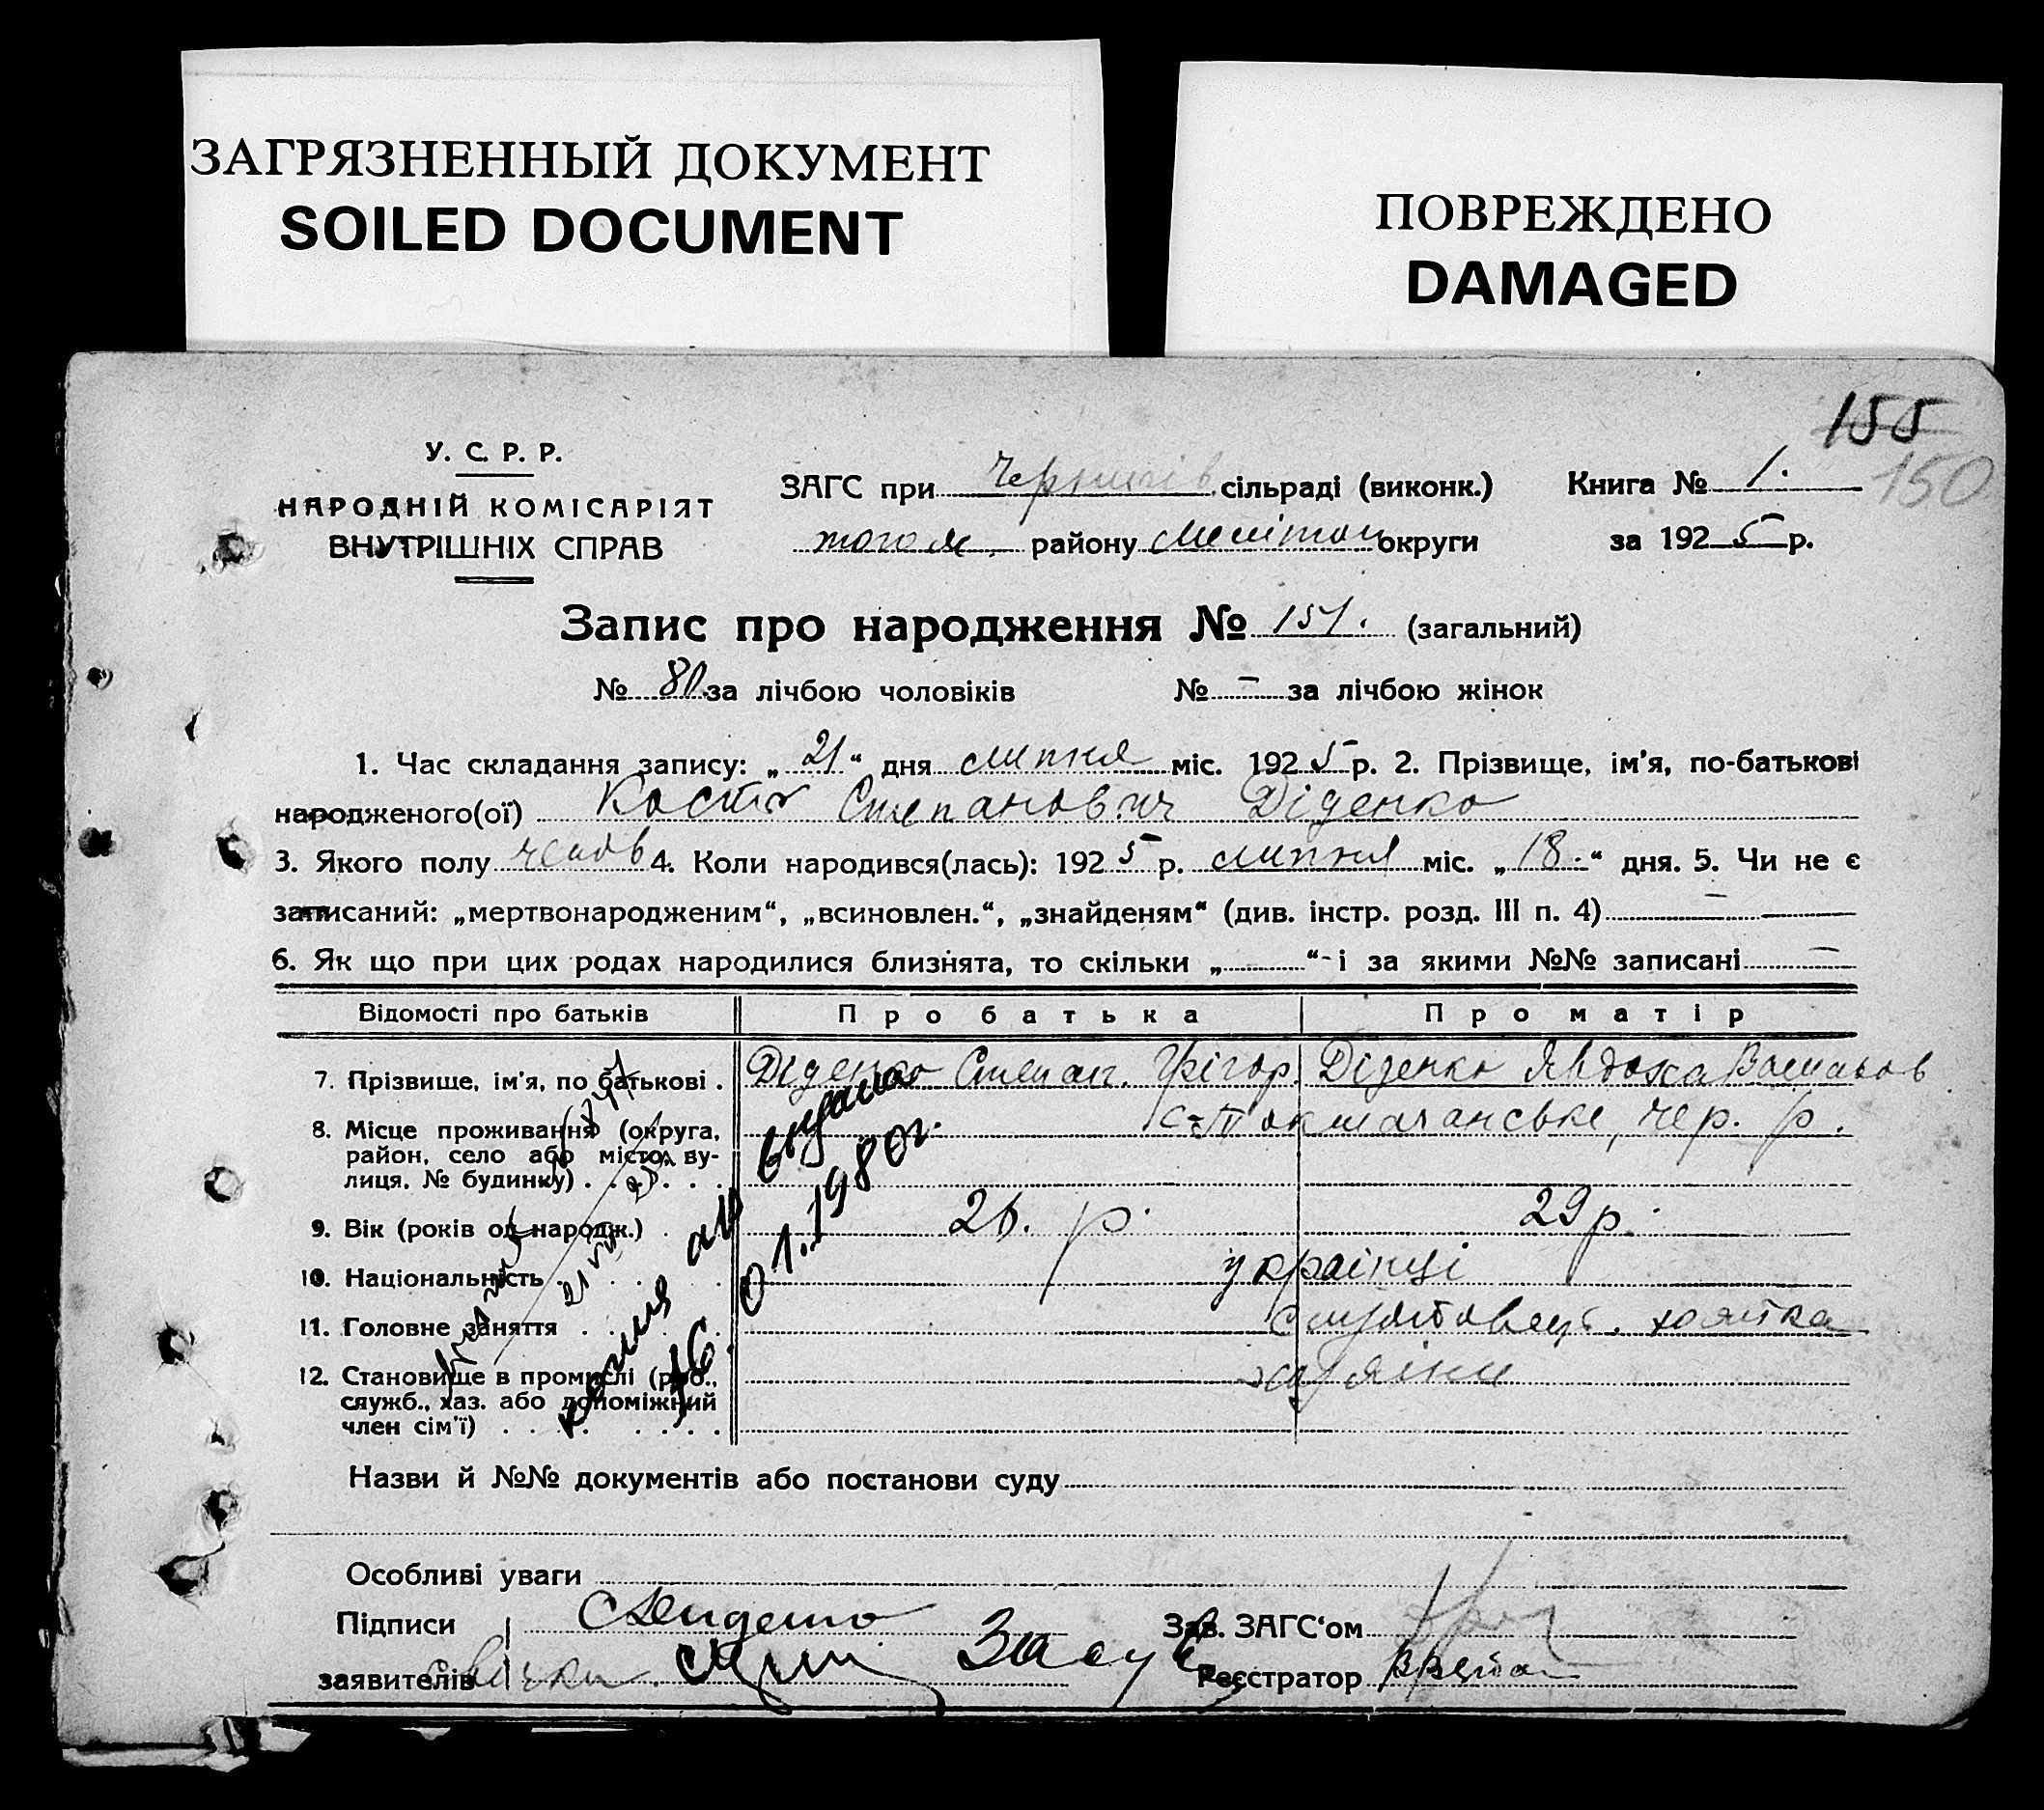 ЗАГРЯЗНЕННЫЙ ДОКУМЕНТ
SOILED DOCUMENT
ПОВРЕЖДЕНО
DAMAGED
155
150
У. С. Р. Р.
НАРОДНІЙ КОМІСАРІЯТ
ВНУТРІШНІХ СПРАВ
ЗАГС при Чернигів сільраді (виконк.)
того ж району Мелітоп округи
Книга № 1.
за 1925 р.
Запис про народження № 151. (загальний)
№ 80 за лічбою чоловіків № – за лічбою жінок
1. Час складання запису: „21“ дня липня міс. 1925 р. 2. Прізвище, ім'я, по-батькові
народженого(ої) Костя Степанович Діденко
3. Якого полу чолов 4. Коли народився(лась): 1925 р. липня міс. „18.“ дня. 5. Чи не є
записаний: „мертвонародженим“, „всиновлен.“, „знайденям“ (див. інстр. розд. III п. 4) –
6. Як що при цих родах народилися близнята, то скільки „ “ і за якими №№ записані –
Відомості про батьків
Про батька
Про матір
7. Прізвище, ім'я, по батькові . Діденко Степан. Грігор. Діденко Явдоха Васильов
8. Місце проживання (округа, район, село або місто, вулиця, № будинку) . . . . . с-Токмачанське, Чер. р.
9. Вік (років од народж.) . 26. р. 29 р.
10. Національність . . . . українці
11. Головне заняття . . . .
12. Становище в промислі (роб., служб., хаз. або допоміжний член сім'ї) . . . . . . . хазяїни
копия а/и выдана
16.01.1980г.
Назви й №№ документів або постанови суду
Особливі уваги
Підписи
заявителів
Зав. ЗАГС'ом
Реєстратор